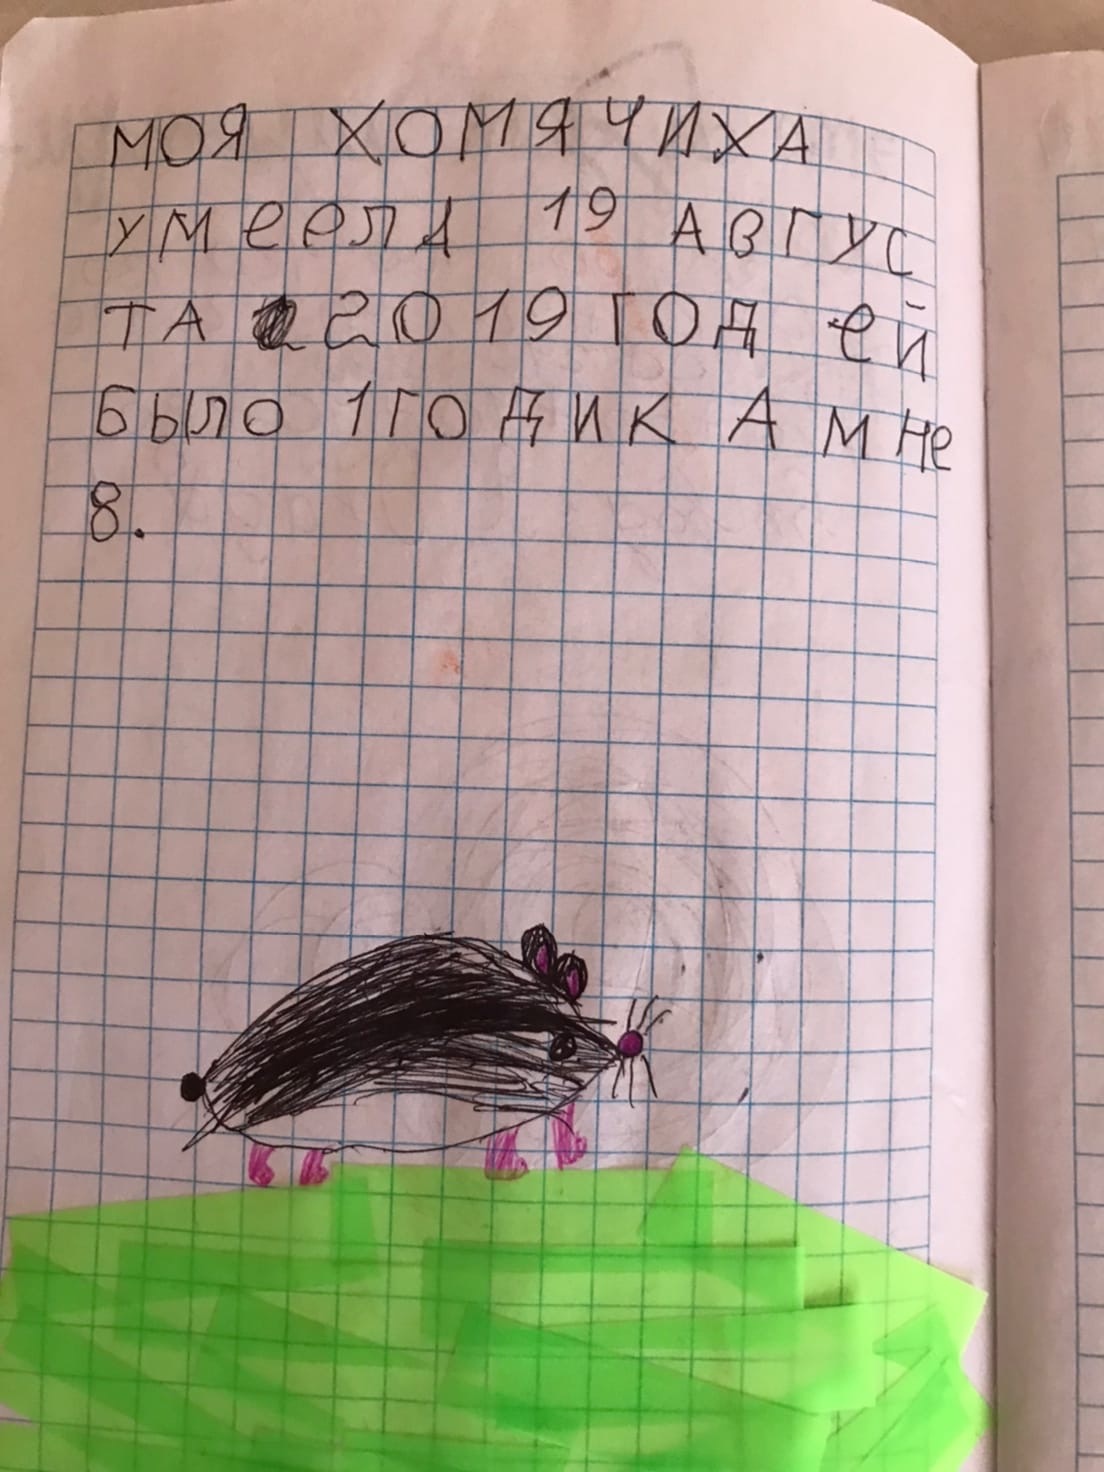 МОЯ ХОМЯЧИХА
УМЕЕЛА 19 АВГУС
ТА 2019 ГОД ЕЙ
БЫЛО 1 ГОДИК А МНЕ
8.